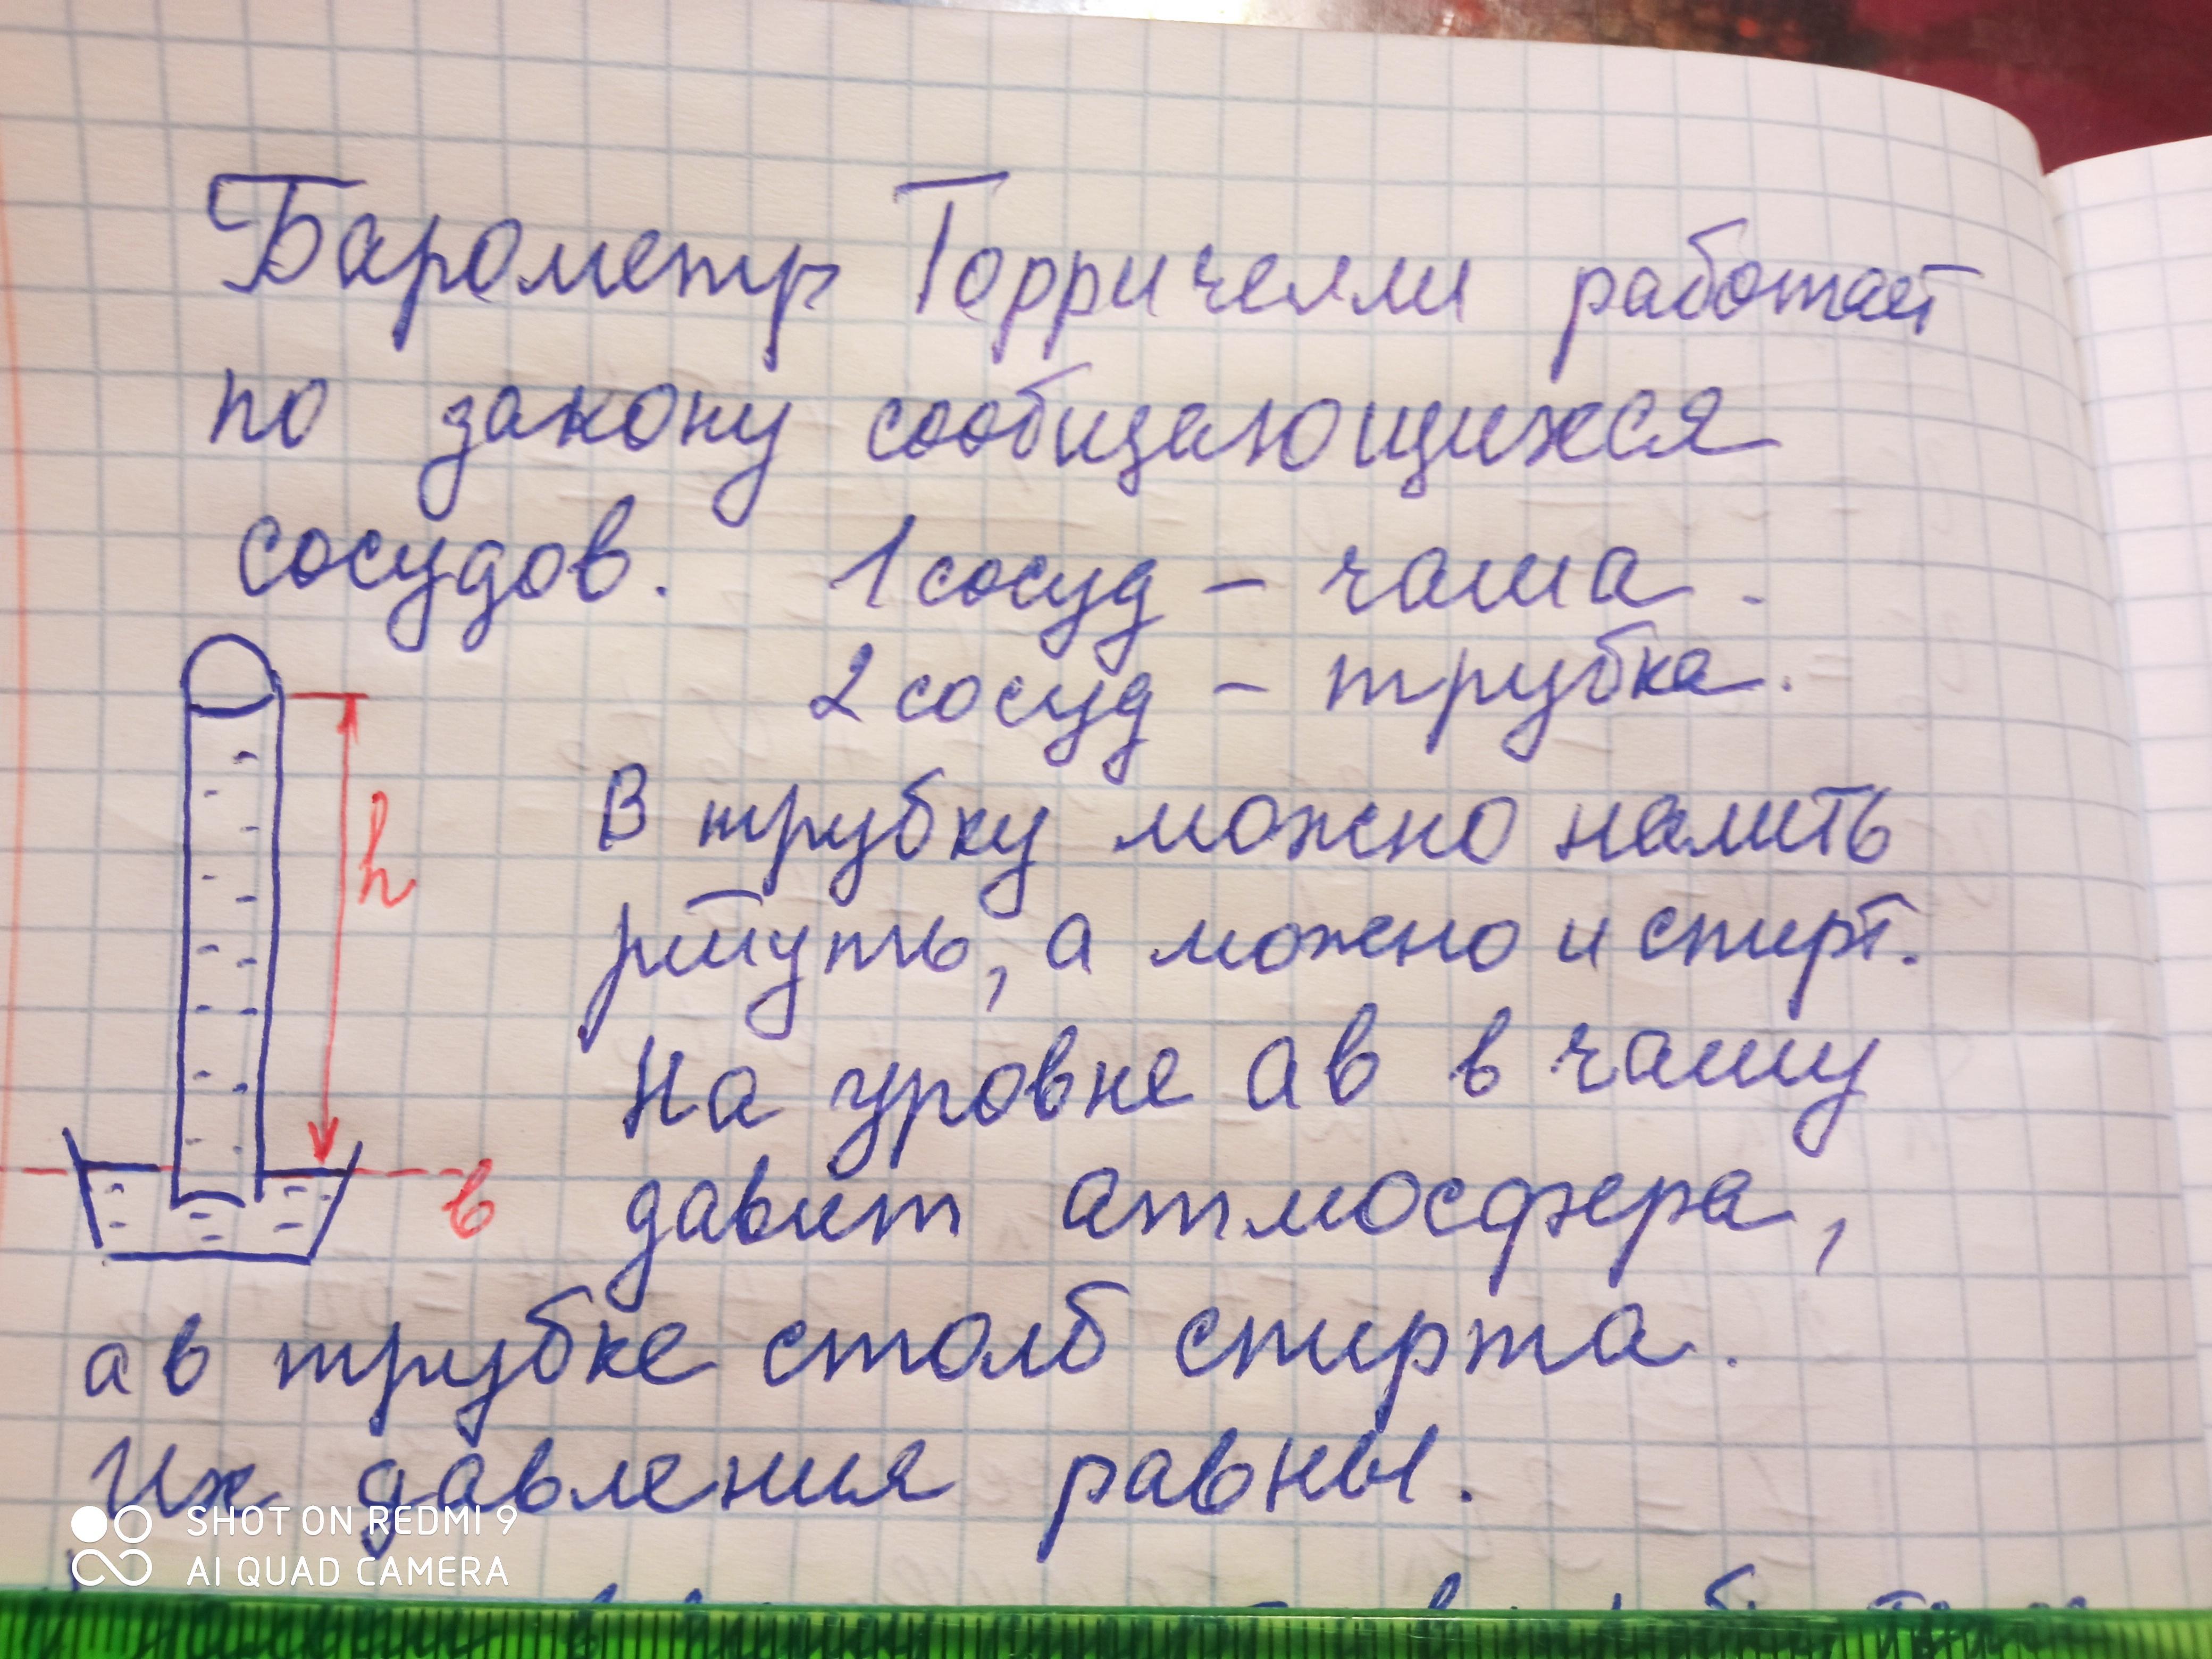 Барометр Торричелли работает
по закону сообщающихся
сосудов. 1 сосуд – чаша.
2 сосуд – трубка.
h
В трубку можно налить
ртуть, а можно и спирт.
На уровне ав в чашу
в
давит атмосфера,
а в трубке столб спирта.
Их давления равны.
SHOT ON REDMI 9
AI QUAD CAMERA